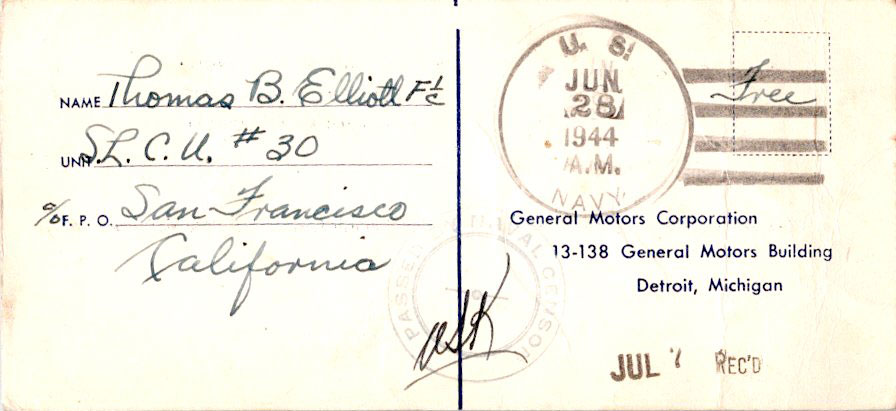 NAME Thomas B. Elliott F 1/c
UNIT S.L.C.U. # 30
c/o F. P. O. San Francisco
California
U. S.
JUN
28
1944
A.M.
NAVY
Free
General Motors Corporation
13-138 General Motors Building
Detroit, Michigan
PASSED BY NAVAL CENSOR
JUL REC'D